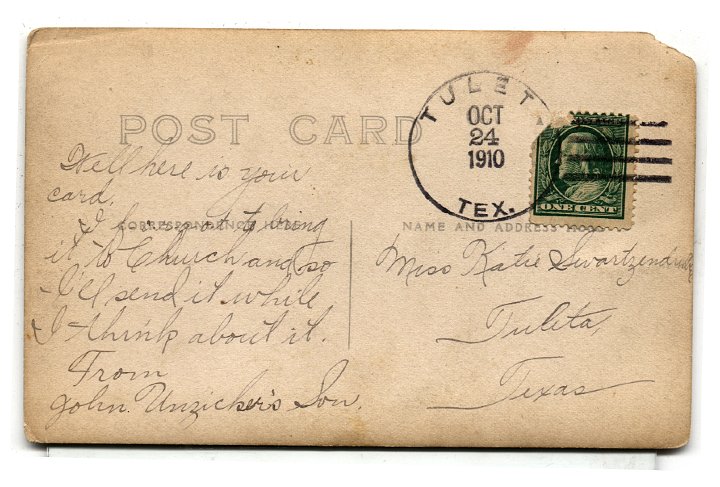 POST CARD
TULET
OCT
24
1910
TEX.
ONE CENT
CORRESPONDENCE HERE
NAME AND ADDRESS
Well here is your
card.
I to bring
it to Church and so
I'll send it while
I think about it.
From
John Unzicker's Son.
Miss Katie Swartzendruber
Tuleta,
Texas